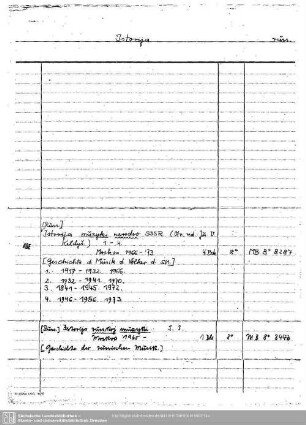 Istorija russ.
[Russ.]
Istorija muzyki narodov SSSR (Otv. red. Ju. V.
Keldyš.) 1 - 4.
Moskva 1966 - 73 4 Bde 8° MB 8° 8287
[Geschichte d. Musik d. Völker d. SU.]
1. 1917 - 1932. 1966.
2. 1932 - 1941. 1970.
3. 1941 - 1945. 1972.
4. 1946 - 1956. 1973
[Russ.] Istorija russkoj muzyki.
Moskva 1960 - 8° MB 8°
[Geschichte der russischen Musik.]
Sächsische Landesbibliothek -
Staats- und Universitätsbibliothek Dresden